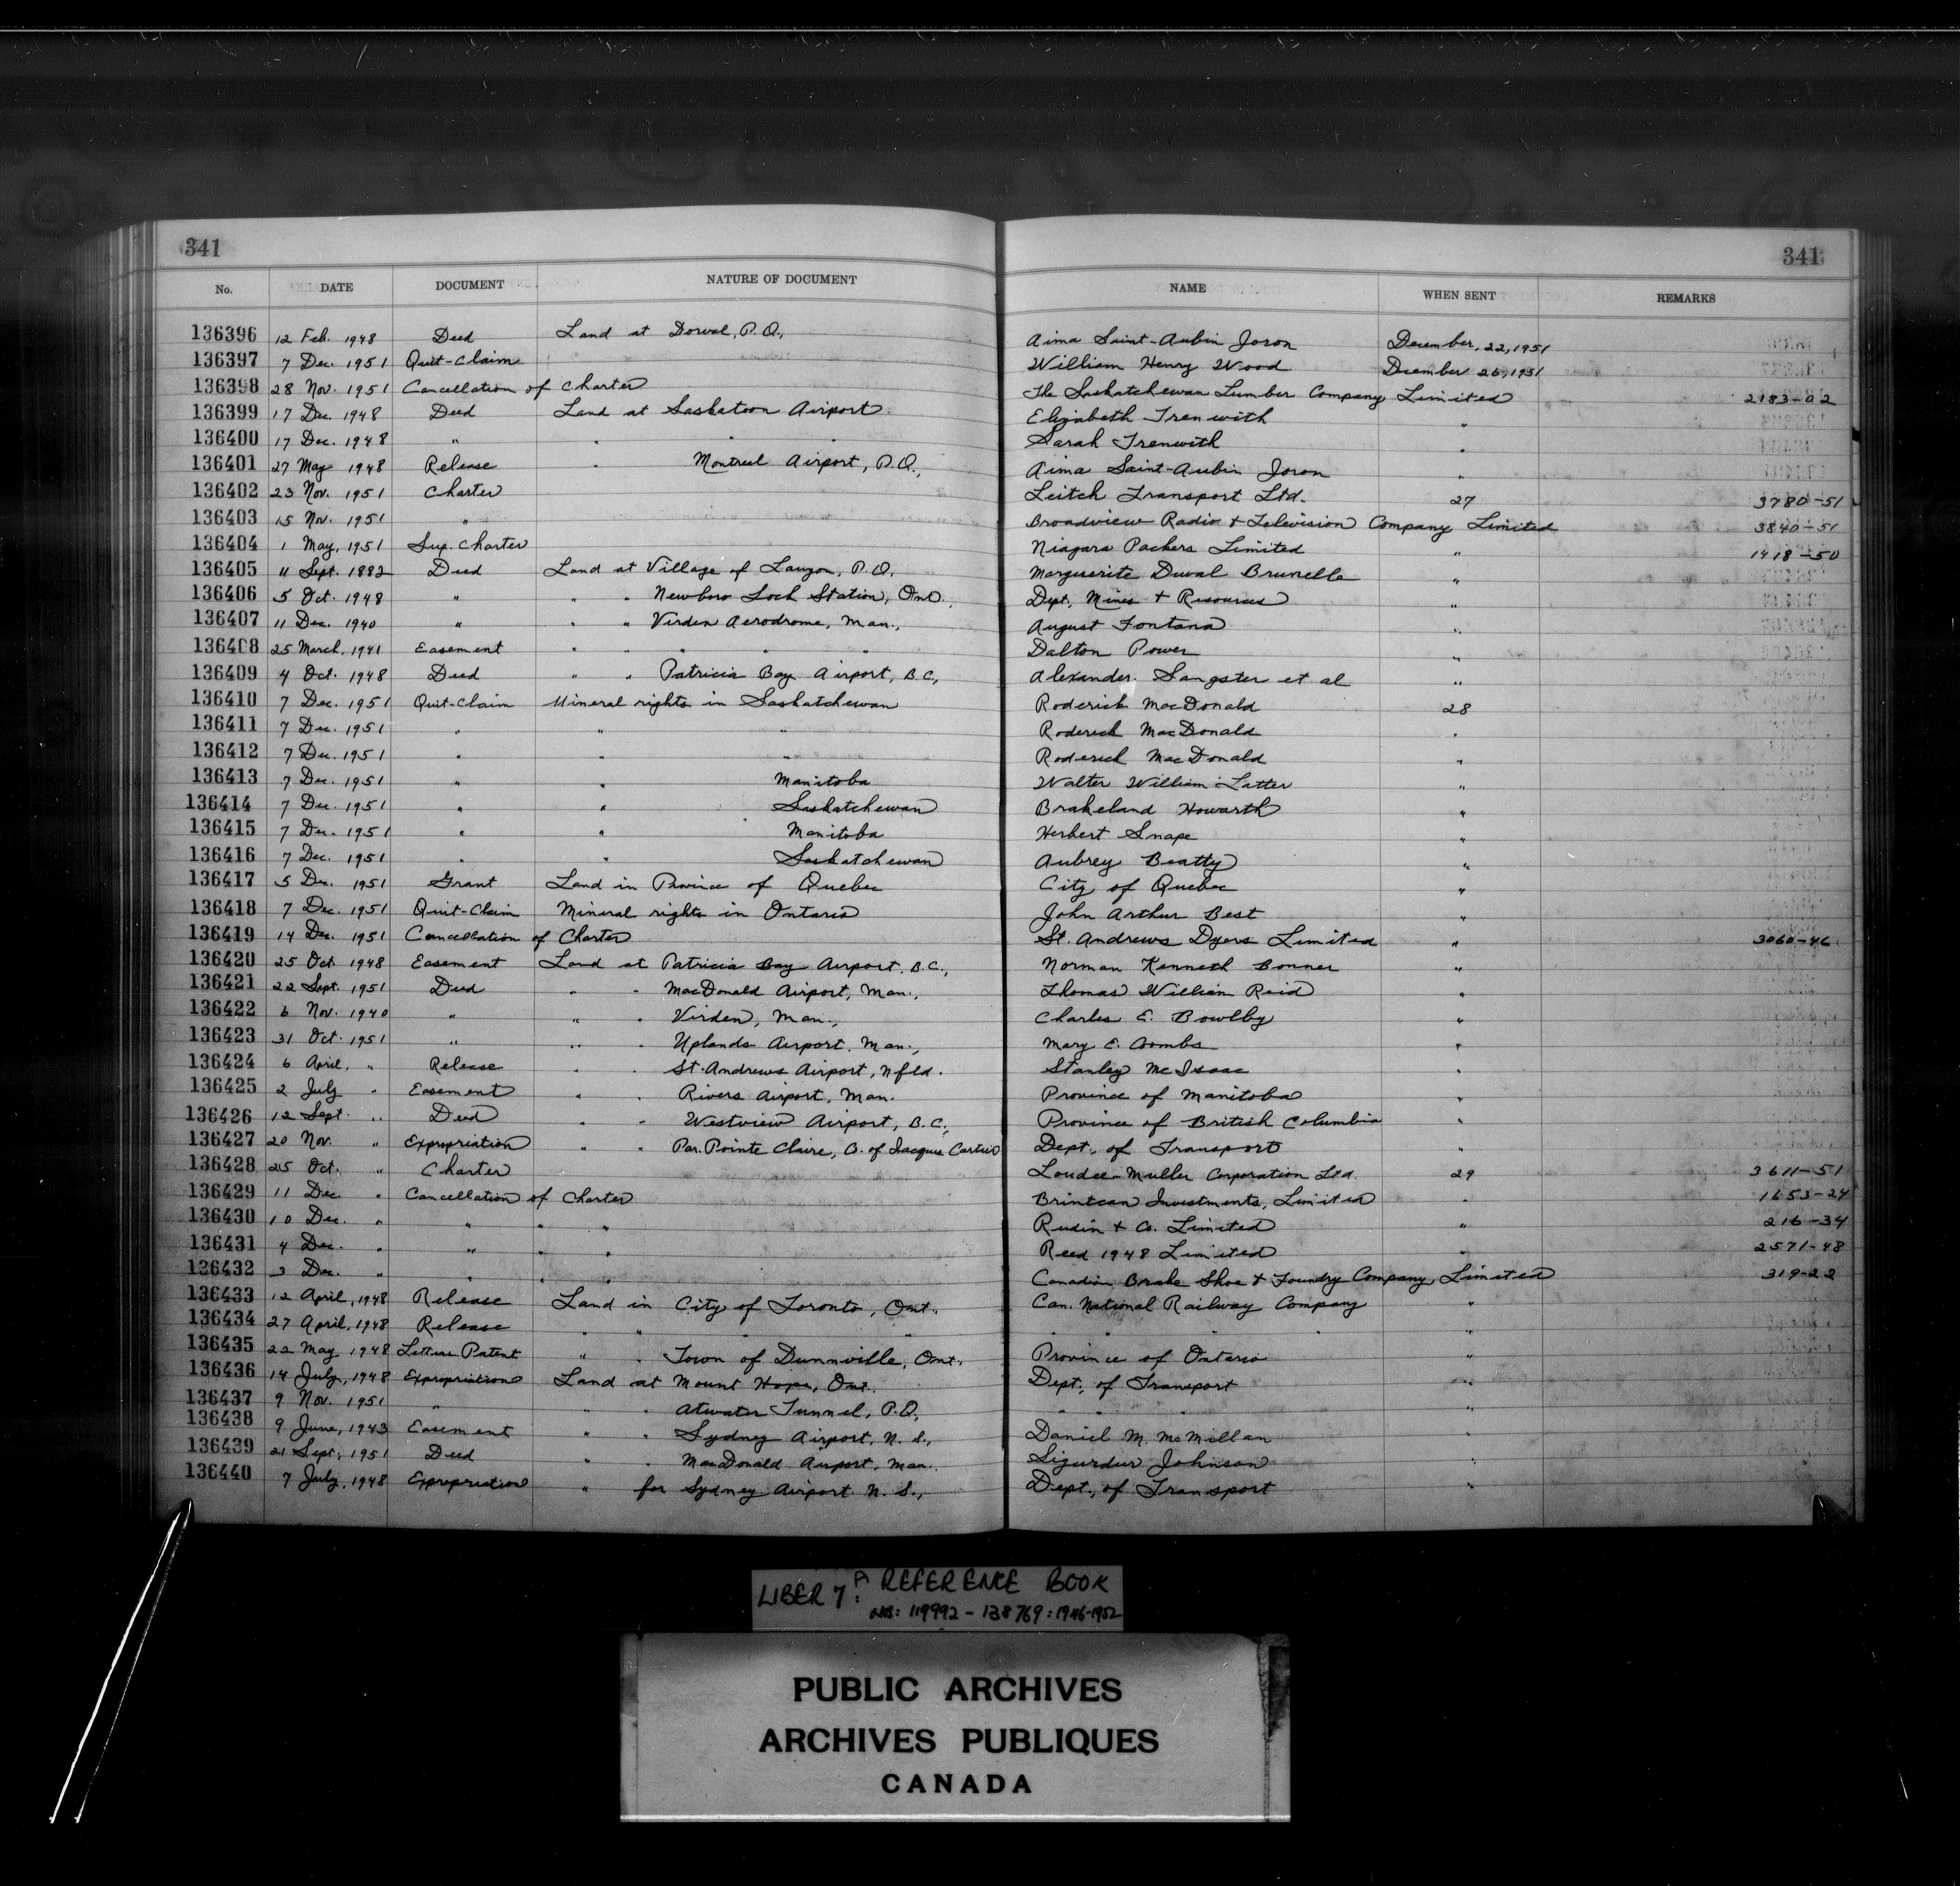 341 341
No. DATE DOCUMENT NATURE OF DOCUMENT NAME WHEN SENT REMARKS
136396 12 Feb. 1948 Deed Land at Dorval, P.Q., Aima Saint-Aubin Joron December, 22, 1951
136397 7 Dec. 1951 Quit-Claim William Henry Wood December 26, 1951
136398 28 Nov. 1951 Cancellation of Charter The Saskatchewan Lumber Company Limited 2183-02
136399 17 Dec. 1948 Deed Land at Saskatoon Airport Elizabeth Trenwith "
136400 17 Dec. 1948 " " " " Sarah Trenwith "
136401 27 May 1948 Release " Montreal Airport, P.Q., Aima Saint-Aubin Joron "
136402 23 Nov. 1951 Charter Leitch Transport Ltd. 27 3780-51
136403 15 Nov. 1951 " Broadview Radio & Television Company Limited 3840-51
136404 1 May, 1951 Sup. Charter Niagara Packers Limited " 1418-50
136405 11 Sept. 1882 Deed Land at Village of Lauzon, P.Q. Marguerite Duval Brunelle "
136406 5 Oct. 1948 " " " Newboro Lock Station, Ont., Dept. Mines & Resources "
136407 11 Dec. 1940 " " " Virden Aerodrome, Man., August Fontana "
136408 25 March, 1941 Easement " " " " Dalton Power "
136409 4 Oct. 1948 Deed " " Patricia Bay Airport, B.C., Alexander Sangster et al "
136410 7 Dec. 1951 Quit-Claim Mineral rights in Saskatchewan Roderick MacDonald 28
136411 7 Dec. 1951 " " " Roderick MacDonald "
136412 7 Dec. 1951 " " " Roderick MacDonald "
136413 7 Dec. 1951 " " Manitoba Walter William Latter "
136414 7 Dec. 1951 " " Saskatchewan Brakeland Howarth "
136415 7 Dec. 1951 " " Manitoba Herbert Snape "
136416 7 Dec. 1951 " " Saskatchewan Aubrey Beatty "
136417 5 Dec. 1951 Grant Land in Province of Quebec City of Quebec "
136418 7 Dec. 1951 Quit-Claim Mineral rights in Ontario John Arthur Best "
136419 14 Dec. 1951 Cancellation of Charter St. Andrews Dyers Limited " 3060-46
136420 25 Oct. 1948 Easement Land at Patricia Bay Airport, B.C., Norman Kenneth Bonner "
136421 22 Sept. 1951 Deed " " MacDonald Airport, Man., Thomas William Reid "
136422 6 Nov. 1940 " " " Virden, Man., Charles E. Bowlby "
136423 31 Oct. 1951 " " " Uplands Airport, Man., Mary E. Coombs "
136424 6 April, " Release " " St. Andrews Airport, Nfld. Stanley McIsaac "
136425 2 July " Easement " " Rivers Airport, Man. Province of Manitoba "
136426 12 Sept. " Deed " " Westview Airport, B.C., Province of British Columbia "
136427 20 Nov. " Expropriation " " Par. Pointe Claire, Co. of Jacques Cartier Dept., of Transport "
136428 25 Oct. " Charter Corporation Ltd. 29 3611-51
136429 11 Dec. " Cancellation of Charter Brintcan Investments, Limited " 1653-24
136430 10 Dec. " " " " Rudin & Co. Limited " 216-34
136431 4 Dec. " " " " Reed 1948 Limited " 2571-48
136432 3 Dec. " " " " Canadian Brake Shoe & Foundry Company Limited 319-22
136433 12 April, 1948 Release Land in City of Toronto, Ont., Can. National Railway Company "
136434 27 April, 1948 Release " " " " " " " " "
136435 22 May 1948 Letters Patent " " Town of Dunnville, Ont., Province of Ontario "
136436 14 July, 1948 Expropriation Land at Mount Hope, Ont. Dept., of Transport "
136437 9 Nov. 1951 " " " Atwater Tunnel, P.Q., " " " "
136438 9 June, 1943 Easement " " Sydney Airport, N.S., Daniel M. McMillan "
136439 21 Sept, 1951 Deed " " MacDonald Airport, Man. Sigurdur Johnson "
136440 7 July, 1948 Expropriation " for Sydney Airport N.S., Dept., of Transport "
LIBER 7: A REFERENCE BOOK
NOS: 119992 - 138769: 1946-1952
PUBLIC ARCHIVES
ARCHIVES PUBLIQUES
CANADA